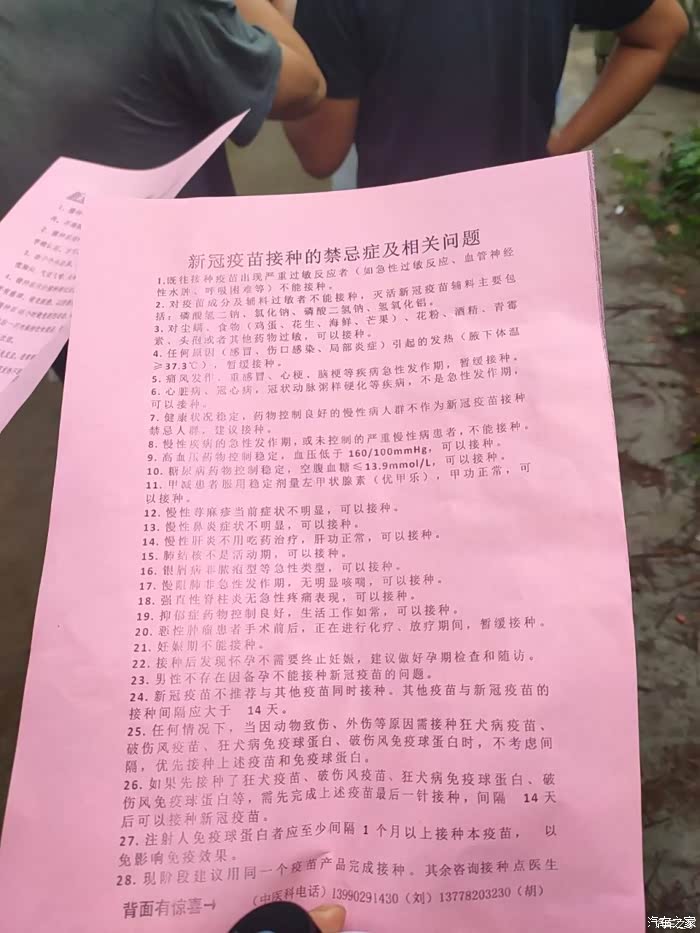 新冠疫苗接种的禁忌症及相关问题
1.既往接种疫苗出现严重过敏反应者（如急性过敏反应、血管神经
性水肿、呼吸困难等）不能接种。
2. 对疫苗成分及辅料过敏者不能接种，灭活新冠疫苗辅料主要包
括：磷酸氢二钠，氯化钠、磷酸二氢钠、氢氧化铝。
3. 对尘螨、食物（鸡蛋、花生、海鲜、芒果）、花粉、酒精、青霉
素、头孢或者其他药物过敏，可以接种。
4. 任何原因（感冒，伤口感染、局部炎症）引起的发热（腋下体温
≥37.3℃），暂缓接种。
5. 痛风发作、重感冒、心梗、脑梗等疾病急性发作期，暂缓接种。
6. 心脏病、冠心病，冠状动脉粥样硬化等疾病，不是急性发作期，
可以接种。
7. 健康状况稳定，药物控制良好的慢性病人群不作为新冠疫苗接种
禁忌人群，建议接种。
8. 慢性疾病的急性发作期，或未控制的严重慢性病患者，不能接种。
9. 高血压药物控制稳定，血压低于 160/100mmHg，可以接种。
10. 糖尿病药物控制稳定，空腹血糖≤13.9mmol/L，可以接种。
11. 甲减患者服用稳定剂量左甲状腺素（优甲乐），甲功正常，可
以接种。
12. 慢性荨麻疹当前症状不明显，可以接种。
13. 慢性鼻炎症状不明显，可以接种。
14. 慢性肝炎不用吃药治疗，肝功正常，可以接种。
15. 肺结核不是活动期，可以接种。
16. 银屑病非脓疱型等急性类型，可以接种。
17. 慢阻肺非急性发作期，无明显咳喘，可以接种。
18. 强直性脊柱炎无急性疼痛表现，可以接种。
19. 抑郁症药物控制良好，生活工作如常，可以接种。
20. 恶性肿瘤患者手术前后，正在进行化疗、放疗期间，暂缓接种。
21. 妊娠期不能接种。
22. 接种后发现怀孕不需要终止妊娠，建议做好孕期检查和随访。
23. 男性不存在因备孕不能接种新冠疫苗的问题。
24. 新冠疫苗不推荐与其他疫苗同时接种。其他疫苗与新冠疫苗的
接种间隔应大于 14 天。
25. 任何情况下，当因动物致伤、外伤等原因需接种狂犬病疫苗、
破伤风疫苗、狂犬病免疫球蛋白、破伤风免疫球蛋白时，不考虑间
隔，优先接种上述疫苗和免疫球蛋白。
26. 如果先接种了狂犬疫苗、破伤风疫苗、狂犬病免疫球蛋白、破
伤风免疫球蛋白等，需先完成上述疫苗最后一针接种，间隔 14 天
后可以接种新冠疫苗。
27. 注射人免疫球蛋白者应至少间隔 1 个月以上接种本疫苗， 以
免影响免疫效果。
28. 现阶段建议用同一个疫苗产品完成接种。其余咨询接种点医生
背面有惊喜→ （中医科电话）13990291430（刘）13778203230（胡）
汽车之家